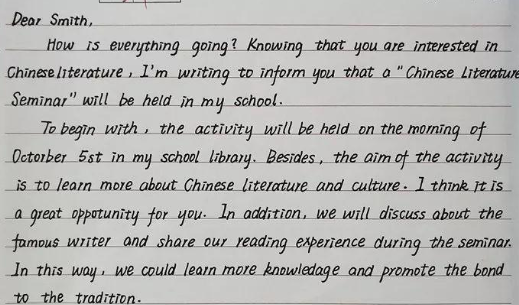 Dear Smith,
How is everything going? Knowing that you are interested in
Chinese literature, I'm writing to inform you that a "Chinese Literature
Seminar" will be held in my school.
To begin with, the activity will be held on the morning of
Octorber 5st in my school library. Besides, the aim of the activity
is to learn more about Chinese literature and culture. I think it is
a great oppotunity for you. In addition, we will discuss about the
famous writer and share our reading experience during the seminar.
In this way, we could learn more knowledage and promote the bond
to the tradition.